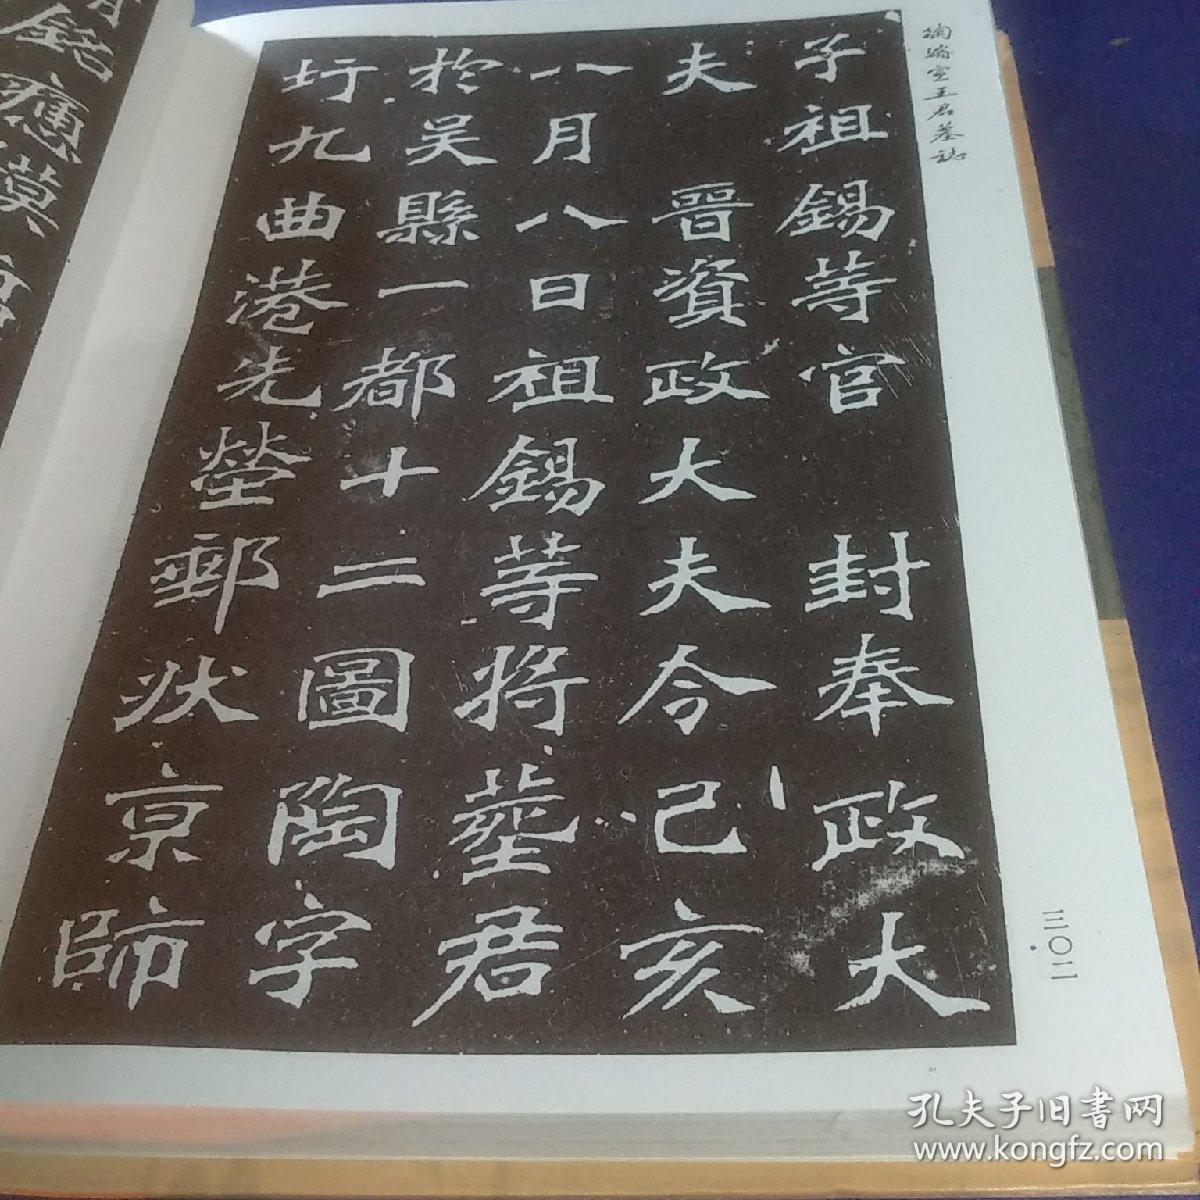 王君墓誌
子祖錫等官 封奉政大
夫 晉資政大夫今己亥
八月八日祖錫等將塟君
於吳縣一都十二圖陶字
圩九曲港先塋郵狀京師
三〇二
孔夫子旧書网
www.kongfz.com